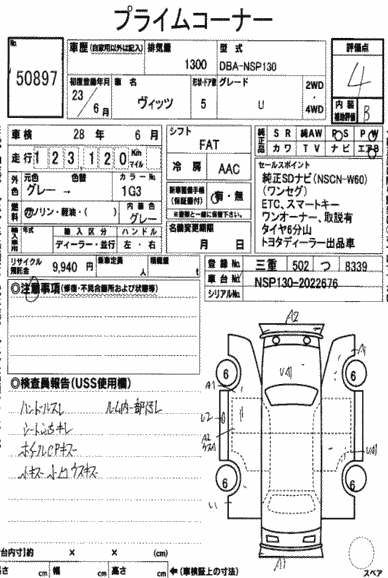 プライムコーナー
No.
50897
車歴 (自家用以外は記入)
排気量
型式
1300
DBA-NSP130
評価点
4
初度登録年月
23
6月
車名
ヴィッツ
形状・ドア数
5
グレード
U
2WD
4WD
内装
補助評価
B
車検
28年 6月
シフト
FAT
純正品
SR 純AW PS PW
カワ TV ナビ エアB
走行
123,120
Km
マイル
冷房
AAC
セールスポイント
純正SDナビ(NSCN-W60)
(ワンセグ)
ETC、スマートキー
ワンオーナー、取説有
タイヤ6分山
トヨタディーラー出品車
外色
元色
色替
カラーNo.
グレー →
1G3
新車整備手帳
(保証書付)
有・無
※車歴と一緒に保管下さい。
燃料
ガソリン・軽油・( )
内装色
グレー
輸入車
年式
輸入区分
ハンドル
ディーラー・並行
左・右
名義変更期限
月 日
リサイクル
預託金
9,940円
乗車定員
人
積載量
t
登録No.
三重 502 つ 8339
車台No.
NSP130-2022676
シリアルNo.
◎注意事項(修復・不具合箇所および状態等)
◎検査員報告(USS使用欄)
ハンドルスレ
シートシミキレ
ホイルCPキズ
A2
A1
U2
6
6
6
6
スペア
台内寸)約 × × (cm)
長さ cm 幅 cm 高さ cm ←(車検証上の寸法)